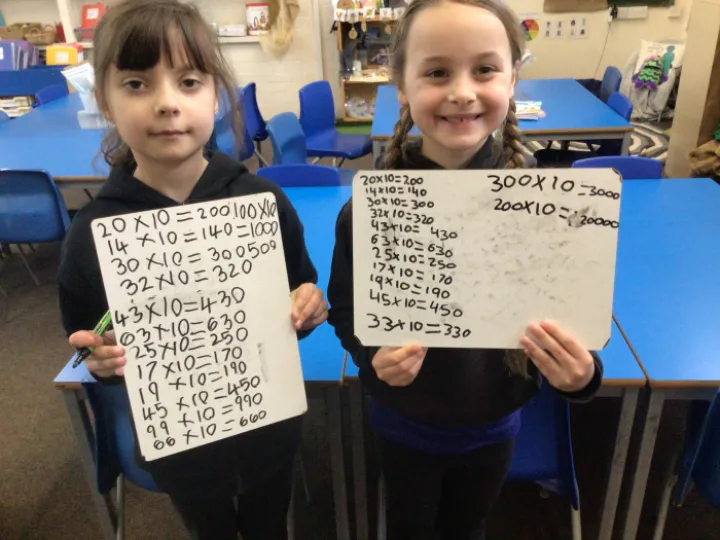 20 x 10 = 200 100 x 10
14 x 10 = 140 = 1000
30 x 10 = 300 509
32 x 10 = 320
43 x 10 = 430
63 x 10 = 630
25 x 10 = 250
17 x 10 = 170
19 x 10 = 190
45 x 10 = 450
99 x 10 = 990
66 x 10 = 660
20x10=200
14x10=140
30x10=300
32x10=320
43x10= 430
63x10=630
25x10=250
17x10=170
19x10=190
45x10=450
33x10=330
300x10=3000
200x10= 20000